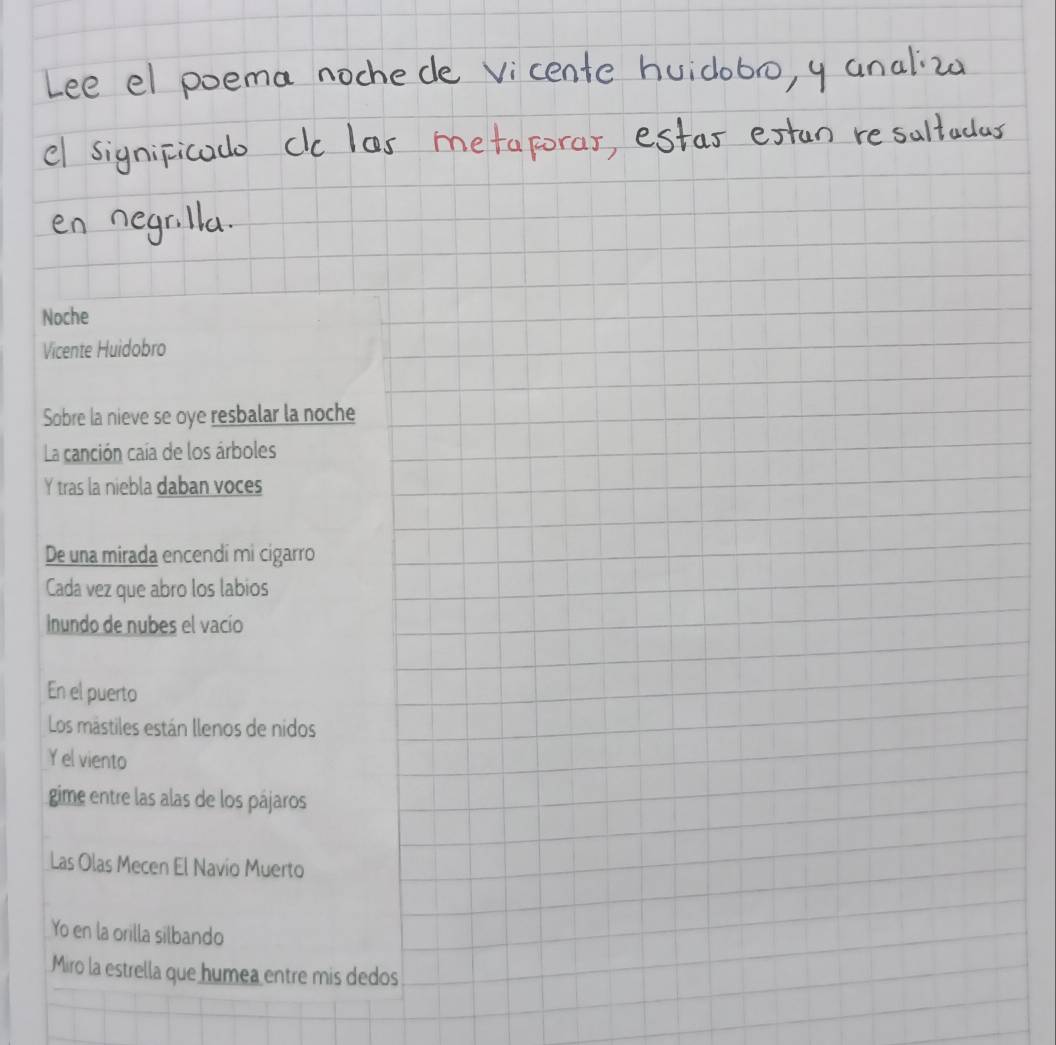 Lee el poema noche de vicente huidobro, y analiza
el significado de las metaforas, estas estan resaltadas
en negrilla.
Noche
Vicente Huidobro
Sobre la nieve se oye resbalar la noche
La canción caía de los árboles
Y tras la niebla daban voces
De una mirada encendí mi cigarro
Cada vez que abro los labios
Inundo de nubes el vacío
En el puerto
Los mástiles están llenos de nidos
Y el viento
gime entre las alas de los pájaros
Las Olas Mecen El Navío Muerto
Yo en la orilla silbando
Miro la estrella que humea entre mis dedos